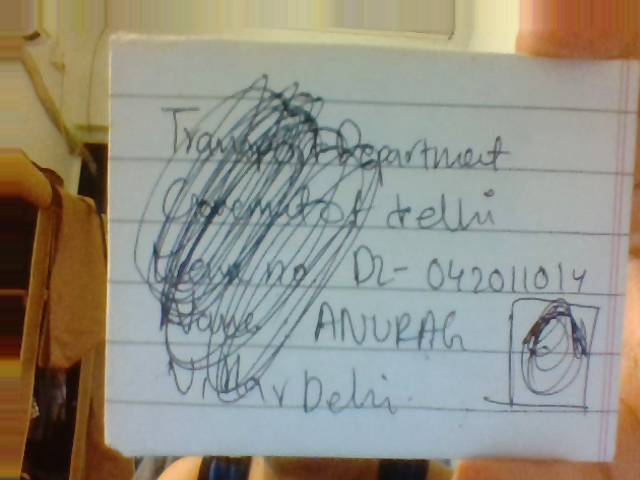 Transport Department
Government of delhi
no. DL- 042011014
Name ANURAG
Vihar Delhi.